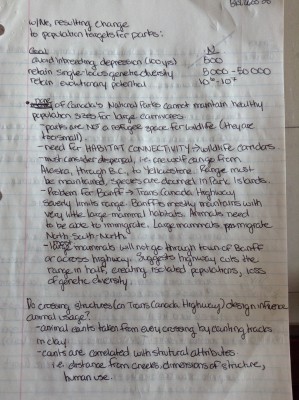 w/Ne, resulting change
to population targets for parks:
Goal N
avoid inbreeding depression (100yrs) 500
retain single-locus genetic diversity 5000-50000
retain evolutionary potential
• none of Canada's National Parks cannot maintain healthy
population sizes for large carnivores
-parks are NOT a refuge space for wildlife (they are
too small).
- need for HABITAT CONNECTIVITY → wildlife corridors.
- must consider dispersal, i.e. one wolf range from
Alaska, through B.C., to Yellowstone. Range must
be maintained, species are doomed in Park Islands.
-Problem for Banff → Trans Canada Highway
Severely limits range. Banff is mostly mountains with
very little large mammal habitats. Animals need
to be able to immigrate. Large mammals migrate
North-South-North
- mammals will not go through town of Banff
or across highway. Suggests highway cuts the
range in half, creating isolated populations, loss
of genetic diversity.
Do crossing structures (on Trans Canada Highway) design influence
animal usage?
-animal counts taken from every crossing by counting tracks
in clay
-counts are correlated with strutural attributes
i.e. distance from creeks, dimensions of structure,
human use.